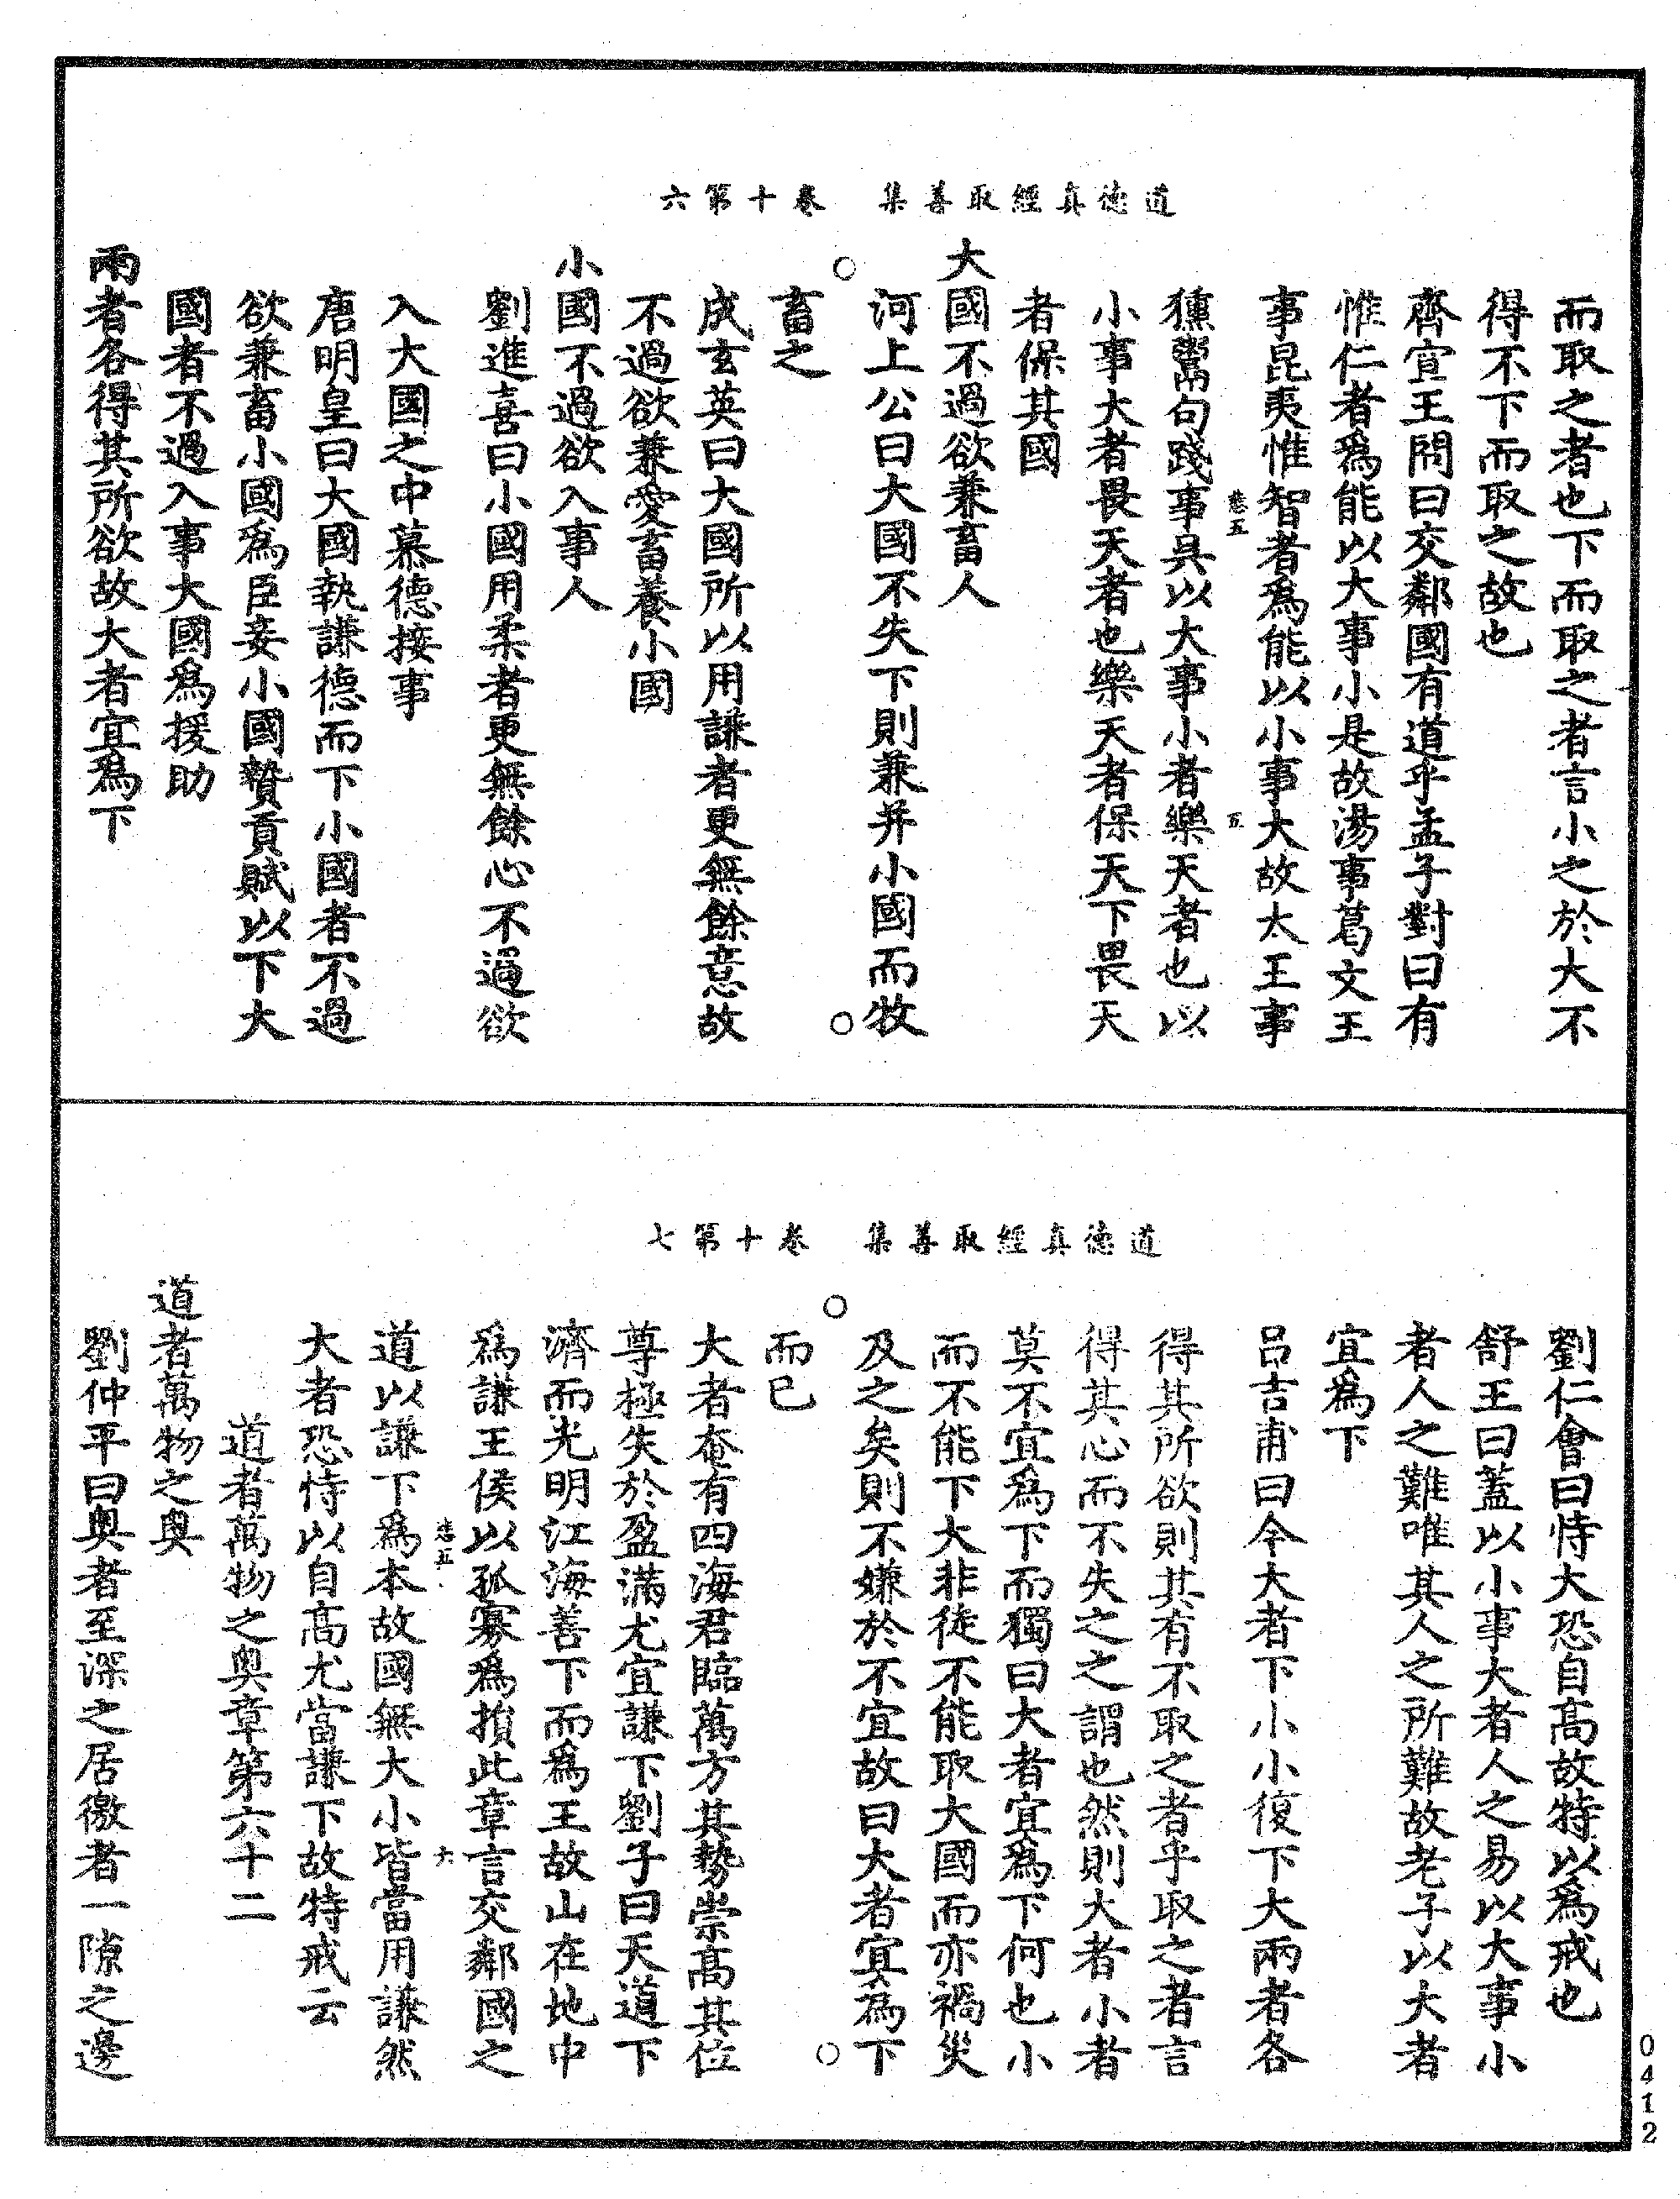 道德真經取善集　卷十第六
而取之者也下而取之者言小之於大不
得不下而取之故也
齊宣王問曰交鄰國有道乎孟子對曰有
惟仁者爲能以大事小是故湯事葛文王
事昆夷惟智者爲能以小事大故太王事
悲五　五
獯鬻句踐事吳以大事小者樂天者也以
小事大者畏天者也樂天者保天下畏天
者保其國
大國不過欲兼畜人
河上公曰大國不失下則兼并小國而牧
畜之
成玄英曰大國所以用謙者更無餘意故
不過欲兼愛畜養小國
小國不過欲入事人
劉進喜曰小國用柔者更無餘心不過欲
入大國之中慕德接事
唐明皇曰大國執謙德而下小國者不過
欲兼畜小國爲臣妾小國贄貢賦以下大
國者不過入事大國爲援助
兩者各得其所欲故大者宜爲下
道德真經取善集　卷十第七
劉仁會曰恃大恐自高故特以爲戒也
舒王曰蓋以小事大者人之易以大事小
者人之難唯其人之所難故老子以大者
宜爲下
呂吉甫曰今大者下小小復下大兩者各
得其所欲則其有不取之者乎取之者言
得其心而不失之之謂也然則大者小者
莫不宜爲下而獨曰大者宜爲下何也小
而不能下大非徒不能取大國而亦禍災
及之矣則不嫌於不宜故曰大者宜爲下
而已
大者奄有四海君臨萬方其勢崇高其位
尊極失於盈滿尤宜謙下劉子曰天道下
濟而光明江海善下而爲王故山在地中
爲謙王侯以孤寡爲損此章言交鄰國之
悲五　六
道以謙下爲本故國無大小皆當用謙然
大者恐恃以自高尤當謙下故特戒云
道者萬物之奧章第六十二
道者萬物之奧
劉仲平曰奧者至深之居徼者一隙之邊
0412